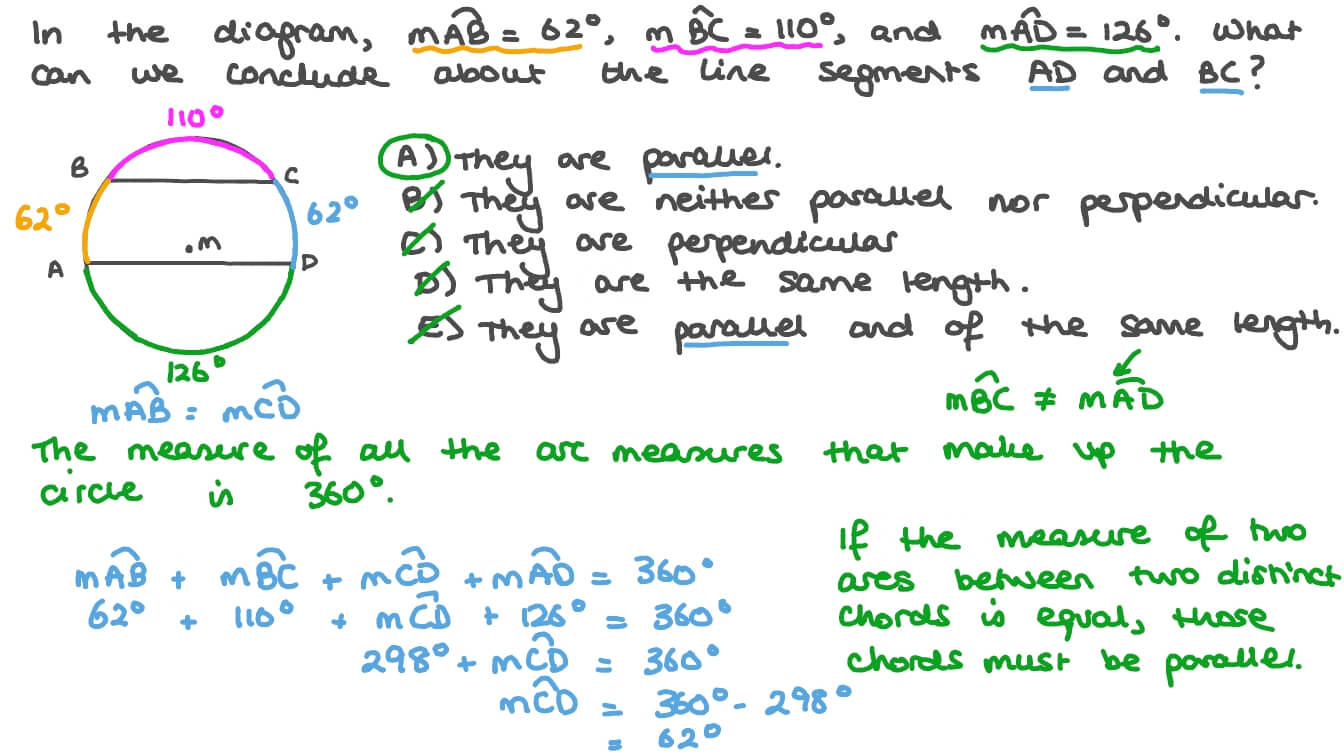 In the diagram, mAB = 62°, mBC = 110°, and mAD = 126°. What
can we conclude about the line segments AD and BC?
110°
B
C
62°
62°
.m
A
D
126°
A) They are parallel.
B) They are neither parallel nor perpendicular.
C) They are perpendicular
D) They are the same length.
E) They are parallel and of the same length.
mAB = mCD
mBC ≠ mAD
The measure of all the arc measures that make up the
circle is 360°.
mAB + mBC + mCD + mAD = 360°
62° + 110° + mCD + 126° = 360°
298° + mCD = 360°
mCD = 360° - 298°
= 62°
If the measure of two
arcs between two distinct
chords is equal, those
chords must be parallel.